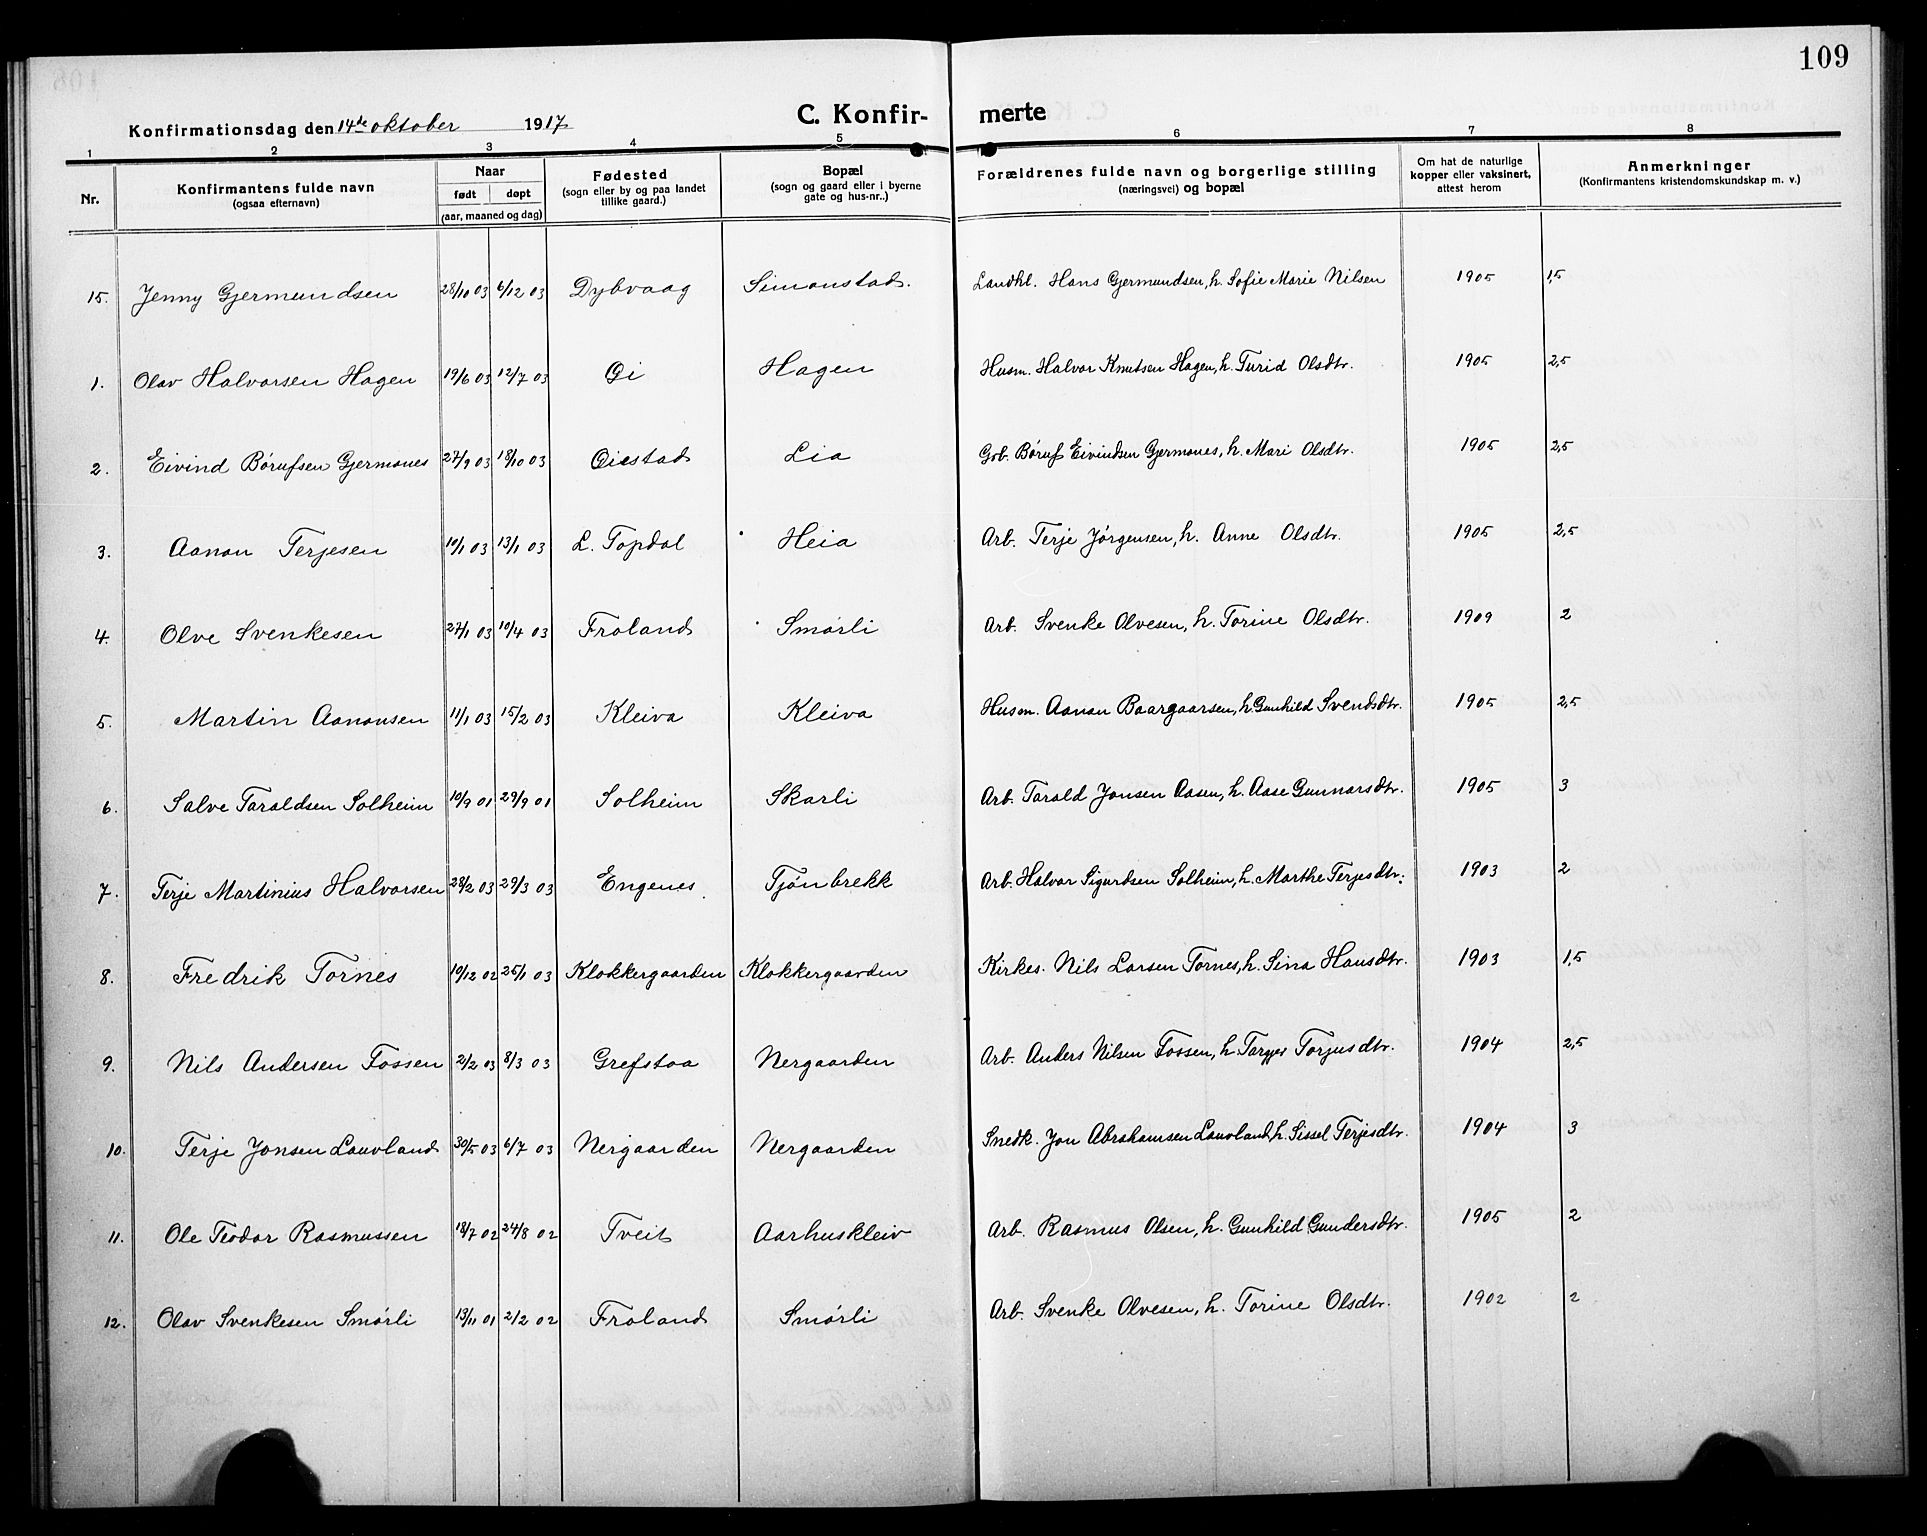 109
Konfirmationsdag den 14de oktober 1917
C. Konfir- merte
1 2 3 4 5 6 7 8
Nr. Konfirmantens fulde navn (ogsaa efternavn) Naar født døpt (aar, maaned og dag) Fødested (sogn eller by og paa landet tillike gaard.) Bopæl (sogn og gaard eller i byerne gate og hus-nr..) Forældrenes fulde navn og borgerlige stilling (næringsvei) og bopæl Om hat de naturlige kopper eller vaksinert, attest herom Anmerkninger (Konfirmantens kristendomskundskap m. v.)
15. Jenny Gjermundsen 28/10 03 6/12 03 Dybvaag Simonstad. Landhl. Hans Gjermundsen, h. Sofie Marie Nilsen 1905 1,5
1. Olav Halvorsen Hagen 19/6 03 12/7 03 Øi Hagen Husm. Halvor Knutsen Hagen, h. Turid Olsdtr. 1905 2,5
2. Eivind Børufsen Gjermones 27/9 03 18/10 03 Øiestad Lia Grb. Børuf Eivindsen Gjermones, h. Mari Olsdtr. 1905 2,5
3. Aanon Terjesen 10/1 03 13/1 03 L. Topdal Heia Arb. Terje Jørgensen, h. Anne Olsdtr. 1905 2,5
4. Olve Svenkesen 27/1 03 10/4 03 Froland Smørli Arb. Svenke Olvesen, h. Torine Olsdtr. 1909 2
5. Martin Aanonsen 11/1 03 15/2 03 Kleiva Kleiva Husm. Aanon Baargaarsen, h. Gunhild Svendsdtr. 1905 2,5
6. Salve Taraldsen Solheim 10/9 01 29/9 01 Solheim Skarli Arb. Tarald Jonsen Aasen, h. Aase Gunnarsdtr. 1905 3
7. Terje Martinius Halvorsen 28/2 03 29/3 03 Engenes. Tjønbrekk Arb. Halvor Sigurdsen Solheim, h. Marthe Terjesdtr. 1903 2
8. Fredrik Tornes 10/12 02 25/1 03 Klokkergaarden Klokkergaarden Kirkes. Nils Larsen Tornes, h. Sina Hansdtr. 1903 1,5
9. Nils Andersen Fossen 2/2 03 8/3 03 Grefstoa Nergaarden Arb. Anders Nilsen Fossen, h. Targjer Torjusdtr. 1904 2,5
10. Terje Jonsen Lauvland 30/5 03 6/7 03 Nergaarden Nergaarden Snedk. Jon Abrahamsen Lauvland, h. Sissel Terjesdtr. 1904 3
11. Ole Teodor Rasmussen 18/7 02 24/8 02 Tveit Aarhuskleiv Arb. Rasmus Olsen, h. Gunhild Gundersdtr. 1905 2
12. Olav Svenkesen Smørli 13/11 01 2/2 02 Froland Smørli Arb. Svenke Olvesen, h. Torine Olsdtr. 1902 2